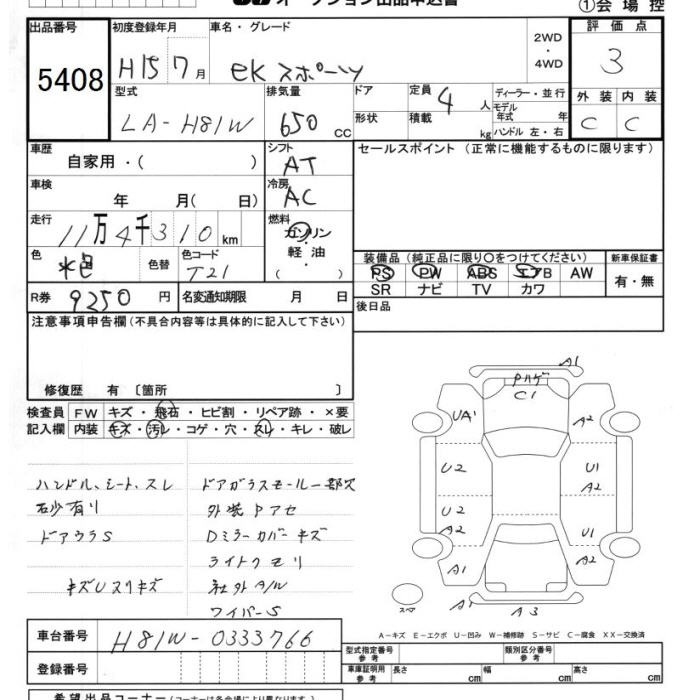 オークション出品申込書
①会場控
出品番号
5408
初度登録年月
H15 7月
車名・グレード
eKスポーツ
2WD
・
4WD
評価点
3
型式
LA-H81W
排気量
650 cc
ドア
形状
定員
4人
積載
kg
ディーラー・並行
モデル
年式 年
ハンドル 左・右
外装 内装
C C
車歴
自家用・( )
シフト
AT
セールスポイント (正常に機能するものに限ります)
車検
年 月( 日)
冷房
AC
走行
11万4千310km
燃料
ガソリン
・
軽油
( )
色
水色
色替
色コード
T21
装備品 (純正品に限り○をつけてください)
新車保証書
PS PW ABS エアB AW
SR ナビ TV カワ
有・無
R券 9250円
名変通知期限 月 日
後日品
注意事項申告欄(不具合内容等は具体的に記入して下さい)
修復歴 有 〔箇所 〕
検査員 FW キズ・飛石・ヒビ割・リペア跡・×要
記入欄 内装 キズ・汚レ・コゲ・穴・スレ・キレ・破レ
ハンドル、シート、スレ
砂有り
ドアウラS
キズUスリキズ
ドアガラスモール一部欠
外装Pアセ
Dミラーカバーキズ
ライトクモリ
社外A/W
ワイパーS
A1
Pハゲ
C1
UA1
A2
U2
U1
A2
U2
A2
U1
A2
A1
A1
A3
スペア
A-キズ E-エクボ U-凹み W-補修跡 S-サビ C-腐食 XX-交換済
車台番号
H81W-0333766
登録番号
型式指定番号
参考
類別区分番号
参考
車庫証明用
参考
長さ cm
幅 cm
高さ cm
希望出品コーナー(コーナーは各会場により異なります)